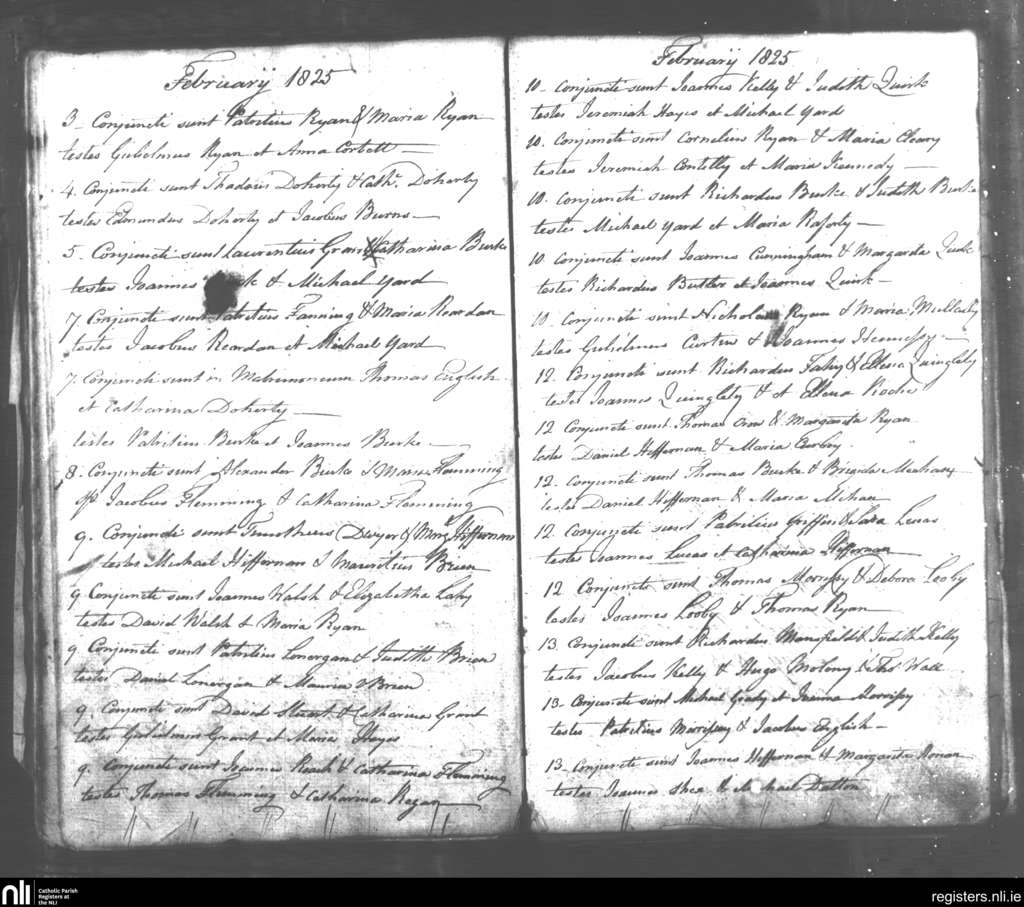 February 1825
3 - Conjuncti sunt Patritius Ryan & Maria Ryan
testes Gulielmus Ryan et Anna Corbett —
4. Conjuncti sunt Thadeus Doherty & Cath. Doherty
testes Edmundus Doherty et Jacobus Burns —
5 - Conjuncti sunt Laurentius & Catharina Burke
testes Joannes & Michael Yard
7. Conjuncti sunt Patritius Fanning & Maria Reardan
testes Jacobus Reardan et Michael Yard
7. Conjuncti sunt in Matrimonium Thomas English
et Catharina Doherty —
testes Patritius Burke et Joannes Burke —
8. Conjuncti sunt Alexander Burke & Maria Flemming
Jacobus Flemming & Catharina Flemming
9. Conjuncti sunt Timotheus Dwyer & Hiffernan
testes Michael Hiffernan & Mauritius Brien
9 Conjuncti sunt Joannes Walsh & Elizabetha Lahy
testes David Walsh & Maria Ryan
9. Conjuncti sunt Patritius Lonergan & Judith Brien
testes Daniel Lonergan & Brien
9. Conjuncti sunt David & Catharina Grant
testes Gulielmus Grant et Maria Hayes
9. Conjuncti sunt Joannes Roach & Catharina Flemming
testes Thomas Flemming & Catharina Regan
February 1825
10 - Conjuncti sunt Joannes Kelly & Judith Quirk
testes Jeremiah Hayes et Michael Yard
10. Conjuncti sunt Cornelius Ryan & Maria Cleary
testes Jeremiah et Maria Kennedy —
10. Conjuncti sunt Richardus Burke & Judith Burke
testes Michael Yard et Maria Raforty —
10 Conjuncti sunt Joannes Cunningham & Margarita Quirk
testes Richardus Butler et Joannes Quirk -
10 - Conjuncti sunt Nicholaus Ryan & Maria
testes Gulielmus Curtin & Joannes Hennessy —
12. Conjuncti sunt Richardus Fahy & Ellena Quinglety
testes Joannes Quinglety & et Ellena Roche
12 Conjuncti sunt Thomas & Margarita Ryan
testes Daniel Heffernan & Maria
12. Conjuncti sunt Thomas Burke & Brigida
testes Daniel Heffernan & Maria Mehan
12 Conjuncti sunt Patritius Griffin & Sara Lucas
testes Joannes Lucas et Catharina Heffernan
12 Conjuncti sunt Thomas Morrissy & Debora Looby
testes Joannes Looby & Thomas Ryan
13. Conjuncti sunt Richardus Mansfield & Judith Kelly
testes Jacobus Kelly & Hugo Molony & Thos Wall
13. Conjuncti sunt Michael Grady et Joanna Morrissy
testes Patritius Morrissy & Jacobus English —
13 - Conjuncti sunt Joannes Heffernan & Margarita
testes Joannes Shea & Michael Dalton
nli
Catholic Parish
Registers at
the NLI
registers.nli.ie